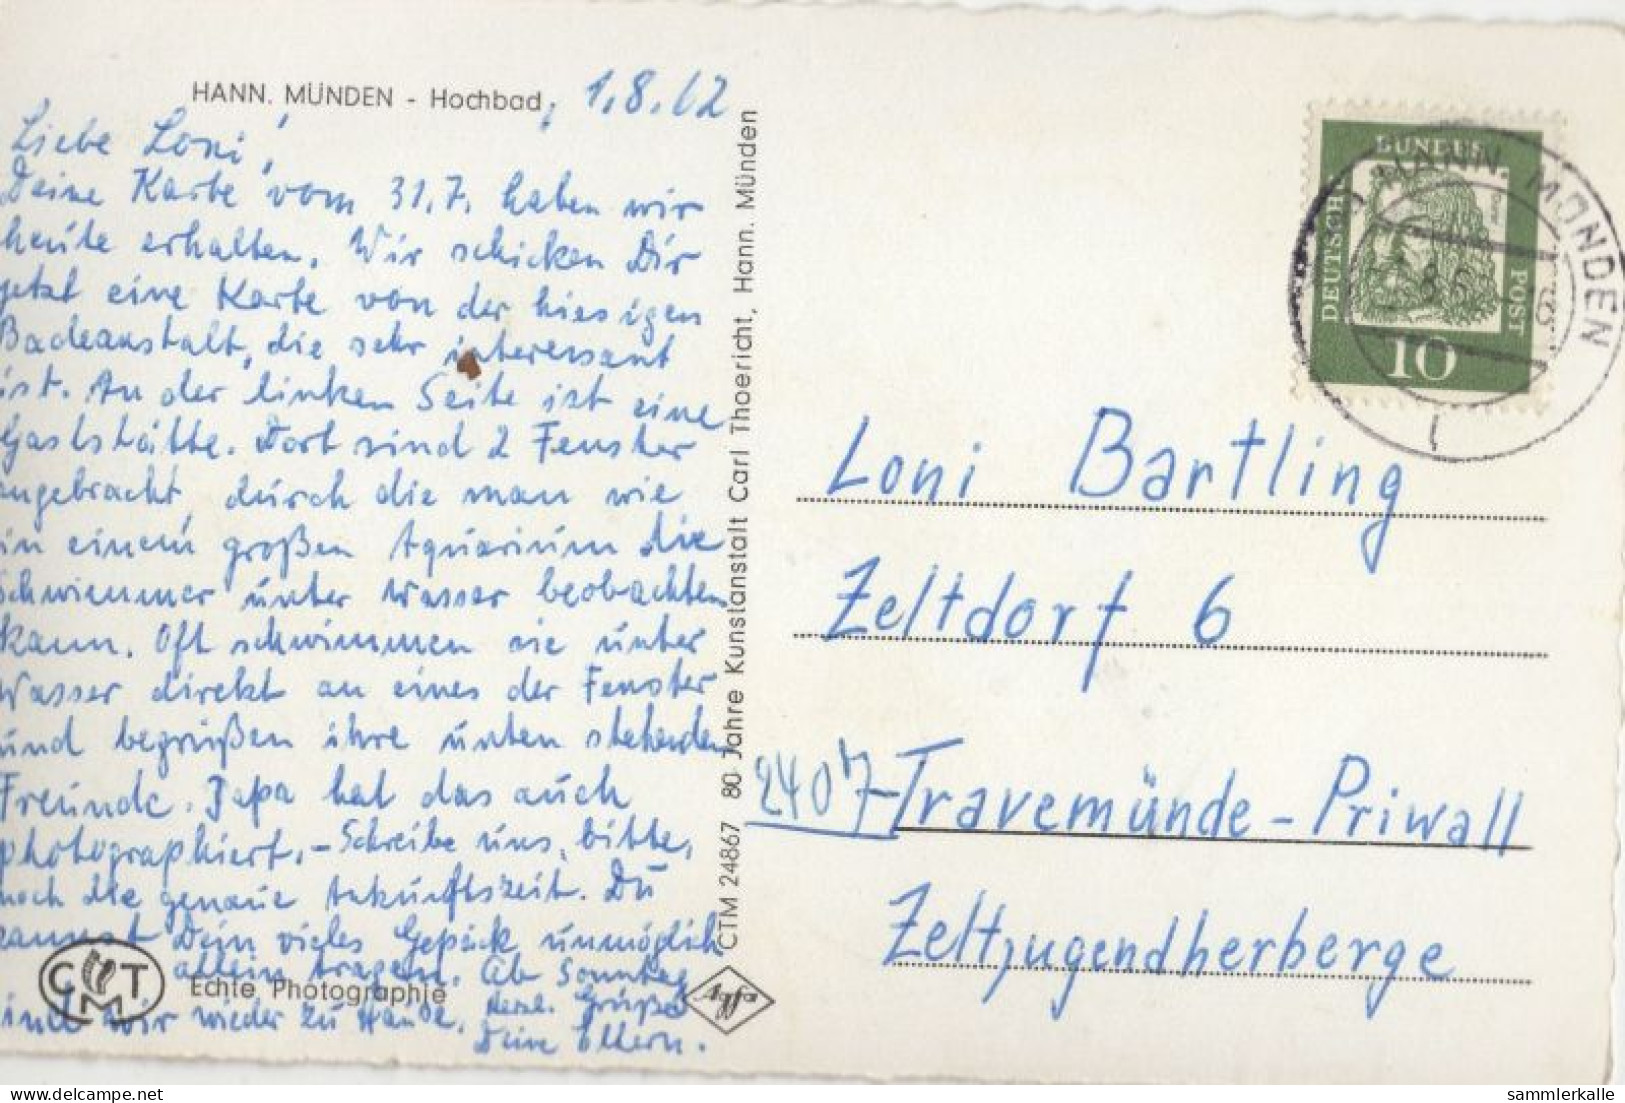 HANN. MÜNDEN - Hochbad, 1.8.62
Liebe Loni,
Deine Karte vom 31.7. haben wir
heute erhalten. Wir schicken Dir
jetzt eine Karte von der hiesigen
Badeanstalt, die sehr interessant
ist. An der linken Seite ist eine
Gaststätte. Dort sind 2 Fenster
angebracht, durch die man wie
in einem großen Aquarium die
Schwimmer unter Wasser beobachten
kann. Oft schwimmen sie unter
Wasser direkt an eines der Fenster
und begrüßen ihre unten stehenden
Freunde. Papa hat das auch
photographiert. - Schreibe uns, bitte,
noch die genaue Ankunftszeit. Du
kannst Dein vieles Gepäck unmöglich
allein tragen. Ab Sonntag
sind wir wieder zu Hause. Herzl. Grüße
Deine Eltern.
CMT
Echte Photographie
CTM 24867 80 Jahre Kunstanstalt Carl Thoericht, Hann. Münden
Agfa
DEUTSCHE BUNDES POST
10
HANN. MÜNDEN
Loni Bartling
Zeltdorf 6
2407 Travemünde-Priwall
Zeltjugendherberge
www.delcampe.net
sammlerkalle